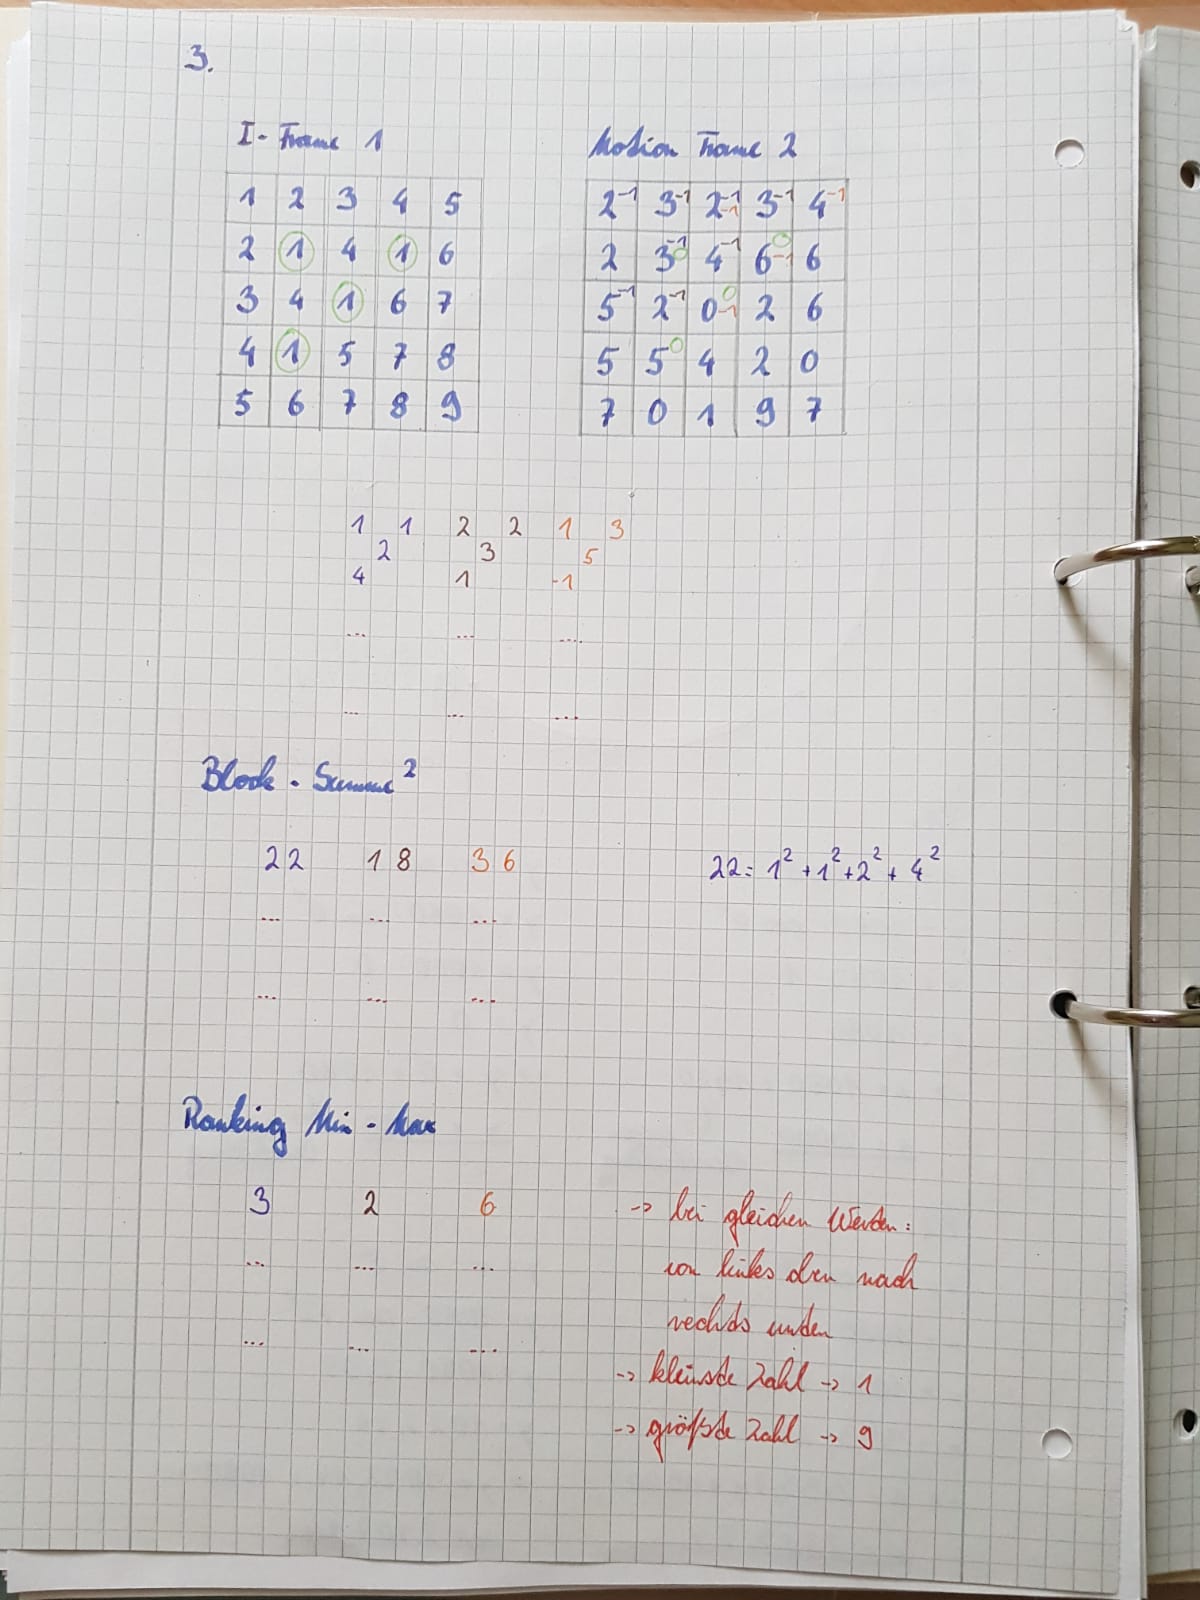 3.
I - Frame 1
Motion Frame 2
1 2 3 4 5
2 1 4 1 6
3 4 1 6 7
4 1 5 7 8
5 6 7 8 9
2⁻¹ 3⁻¹ 2⁻¹ -1 3⁻¹ 4⁻¹
2 3⁻¹ 0 4⁻¹ 6⁰ -1 6
5⁻¹ 2⁻¹ 0⁰ -1 2 6
5 5⁰ 4 2 0
7 0 1 9 7
1 1 2 2 1 3
2 3 5
4 1 -1
... ... ....
... ... ...
Block - Summe²
22 18 36
22 = 1² + 1² + 2² + 4²
... ... ...
... ... ...
Ranking Min - Max
3 2 6
... ... ...
... ... ...
-> bei gleichen Werten:
von links oben nach
rechts unten
-> kleinste Zahl -> 1
-> größte Zahl -> 9